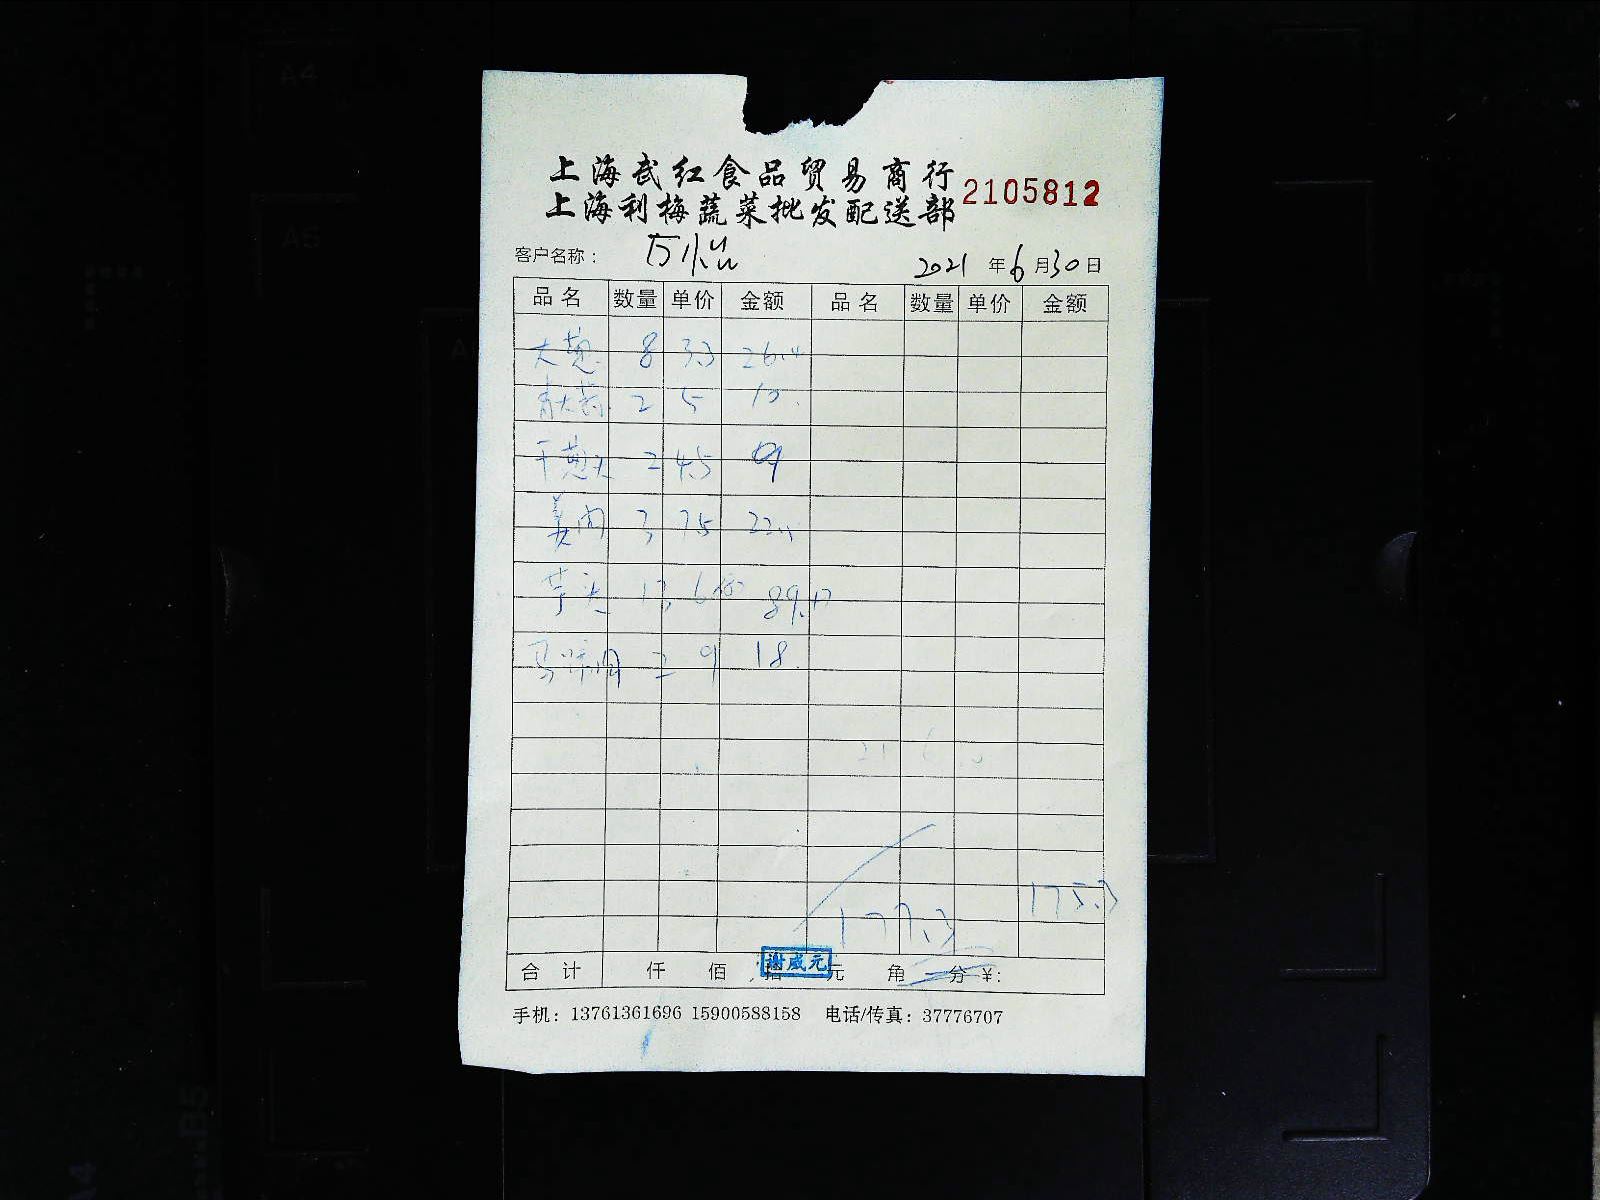 上海武红食品贸易商行
上海利梅蔬菜批发配送部 2105812
客户名称： 2021 年 6 月 30 日
品名 数量 单价 金额 品名 数量 单价 金额
大葱 8 3.3 26.4
2 5 10.
干葱头 2 4.5 9
3 7.5 22.5
芋头 13
2 9 18
175.3
177.3
合计 仟 佰 拾 元 角 分 ¥:
谢咸元
手机：13761361696 15900588158 电话/传真：37776707